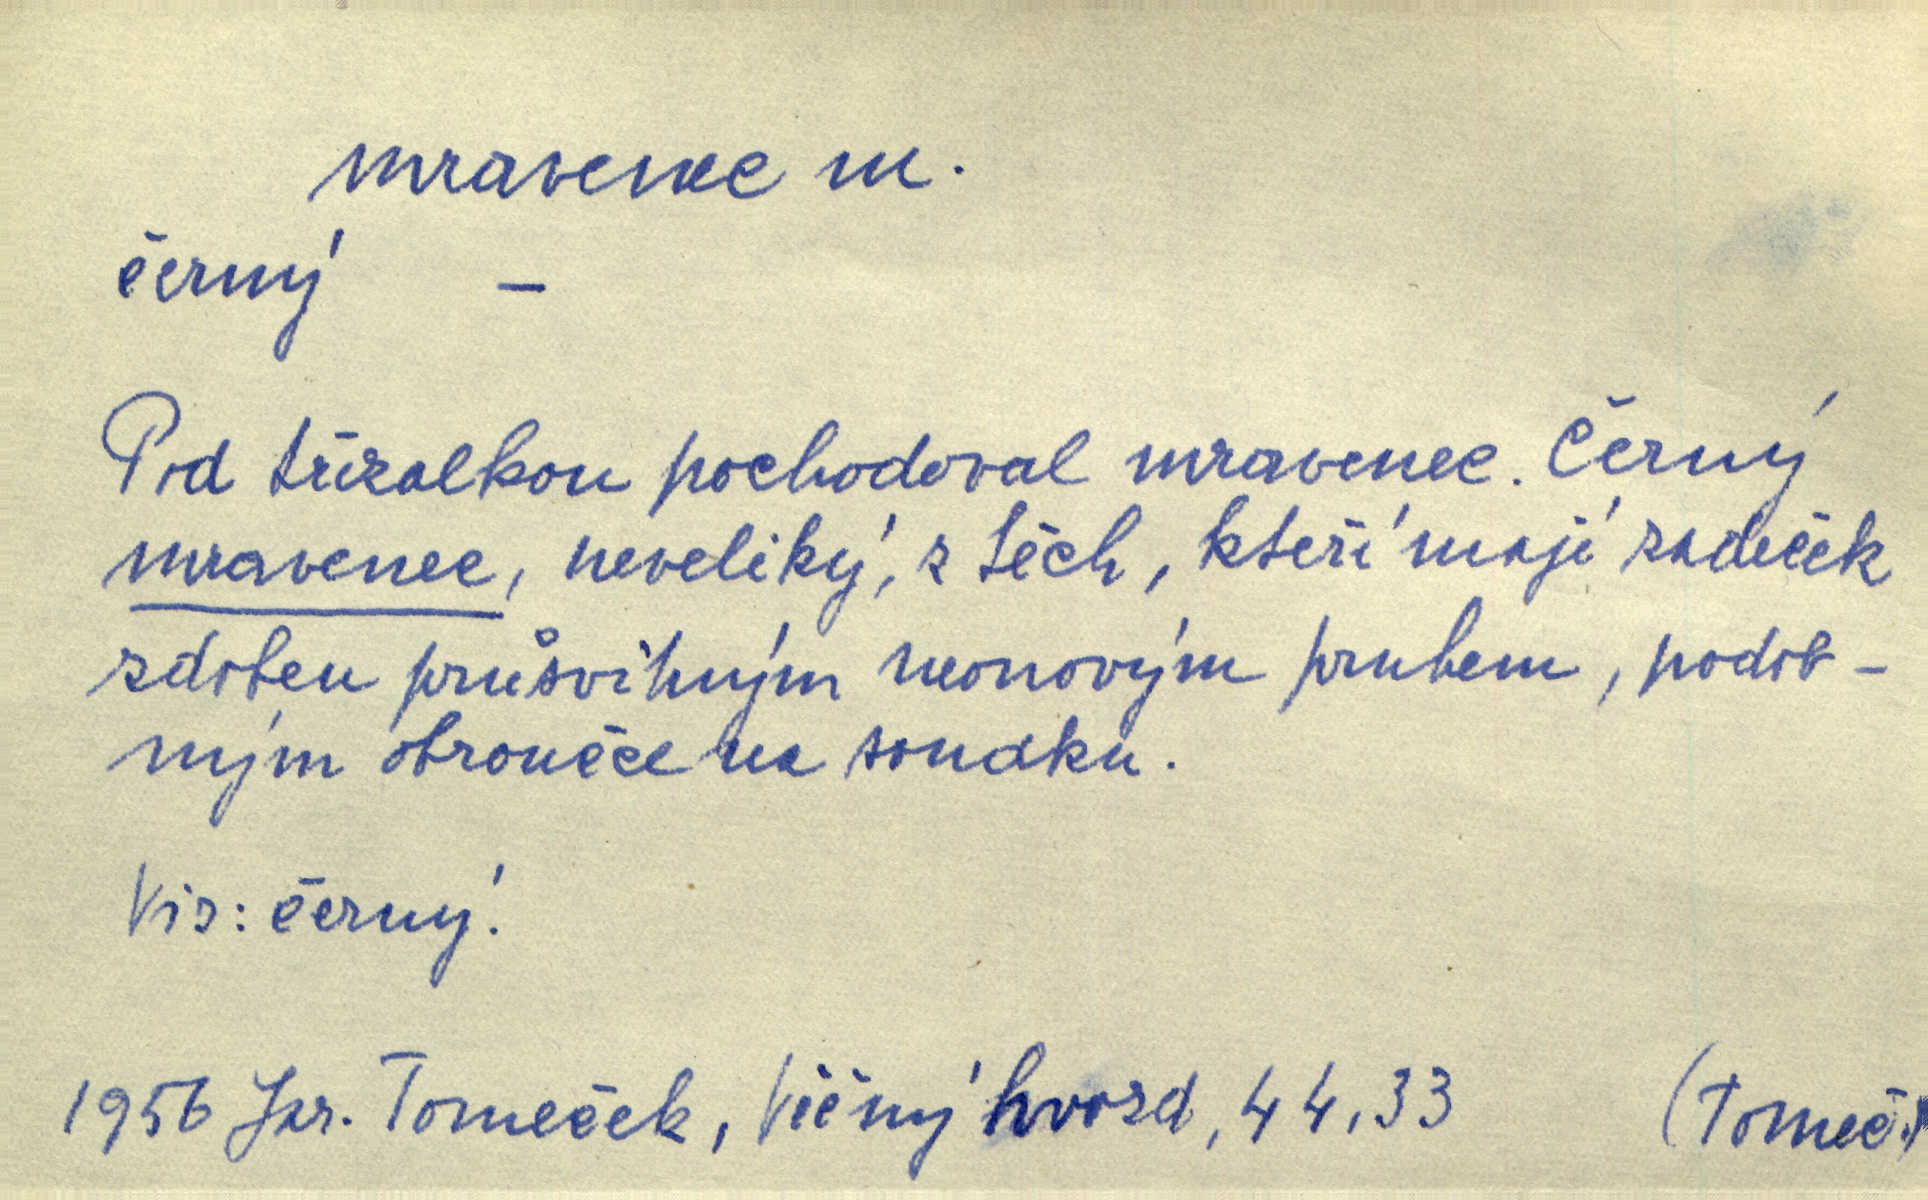 mravenec m.
černý –
Pod třezalkou pochodoval mravenec. Černý
mravenec, neveliký, z těch, kteří mají zadeček
zdoben průsvitným neonovým pruhem, podob-
ným obroučce na soudku.
Viz: černý.
1956 Jar. Tomeček, Věčný hvozd, 44, 33 (Tomeč.)